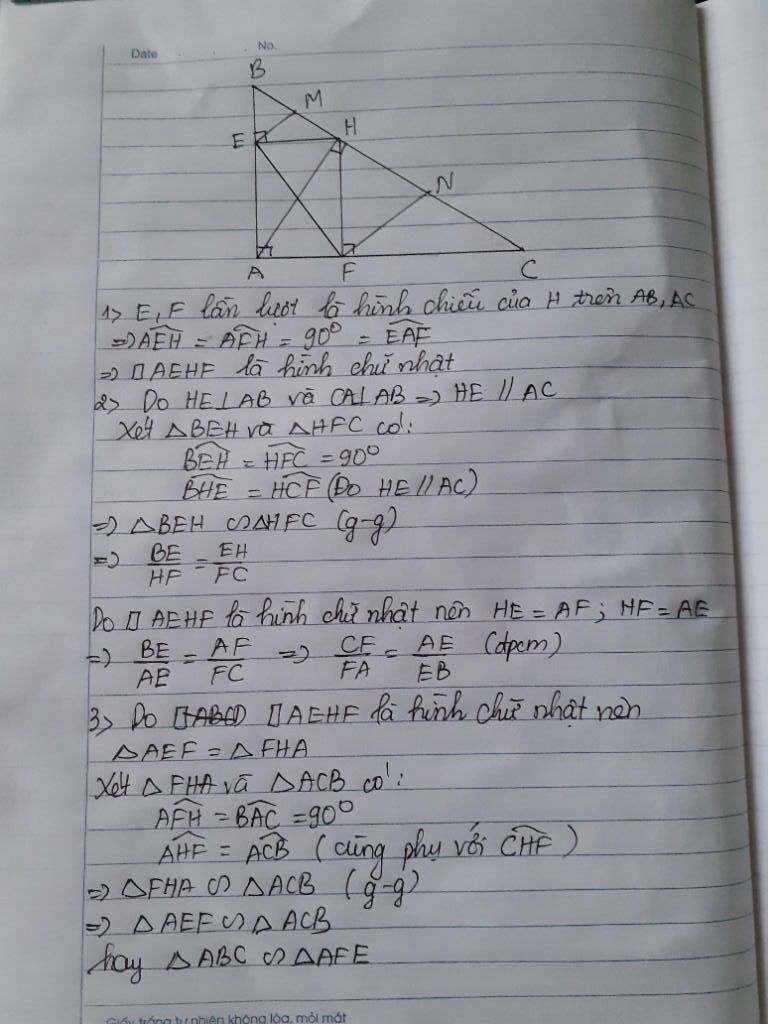 Date . . . No.
B
M
E
H
N
A
F
C
1> E, F lần lượt là hình chiếu của H trên AB, AC
=> AEH = AFH = 90° = EAF
=> □AEHF là hình chữ nhật
2> Do HE⊥AB và CA⊥AB => HE // AC
Xét △BEH và △HFC có:
BEH = HFC = 90°
BHE = HCF (Do HE // AC)
=> △BEH ∽ △HFC (g-g)
=> BE/HF = EH/FC
Do □ AEHF là hình chữ nhật nên HE = AF; HF = AE
=> BE/AE = AF/FC => CF/FA = AE/EB (đpcm)
3> Do □ABCD □AEHF là hình chữ nhật nên
△AEF = △FHA
Xét △FHA và △ACB có:
AFH = BAC = 90°
AHF = ACB (cùng phụ với CHF)
=> △FHA ∽ △ACB (g-g)
=> △AEF ∽ △ACB
hay △ABC ∽ △AFE
Giấy trắng tự nhiên không lóa, mỏi mắt